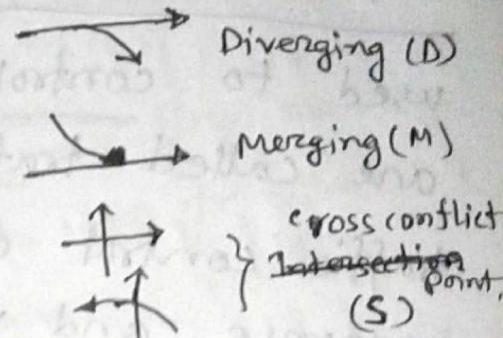 Diverging (D)
Merging (M)
cross conflict
Intersection point.
(S)